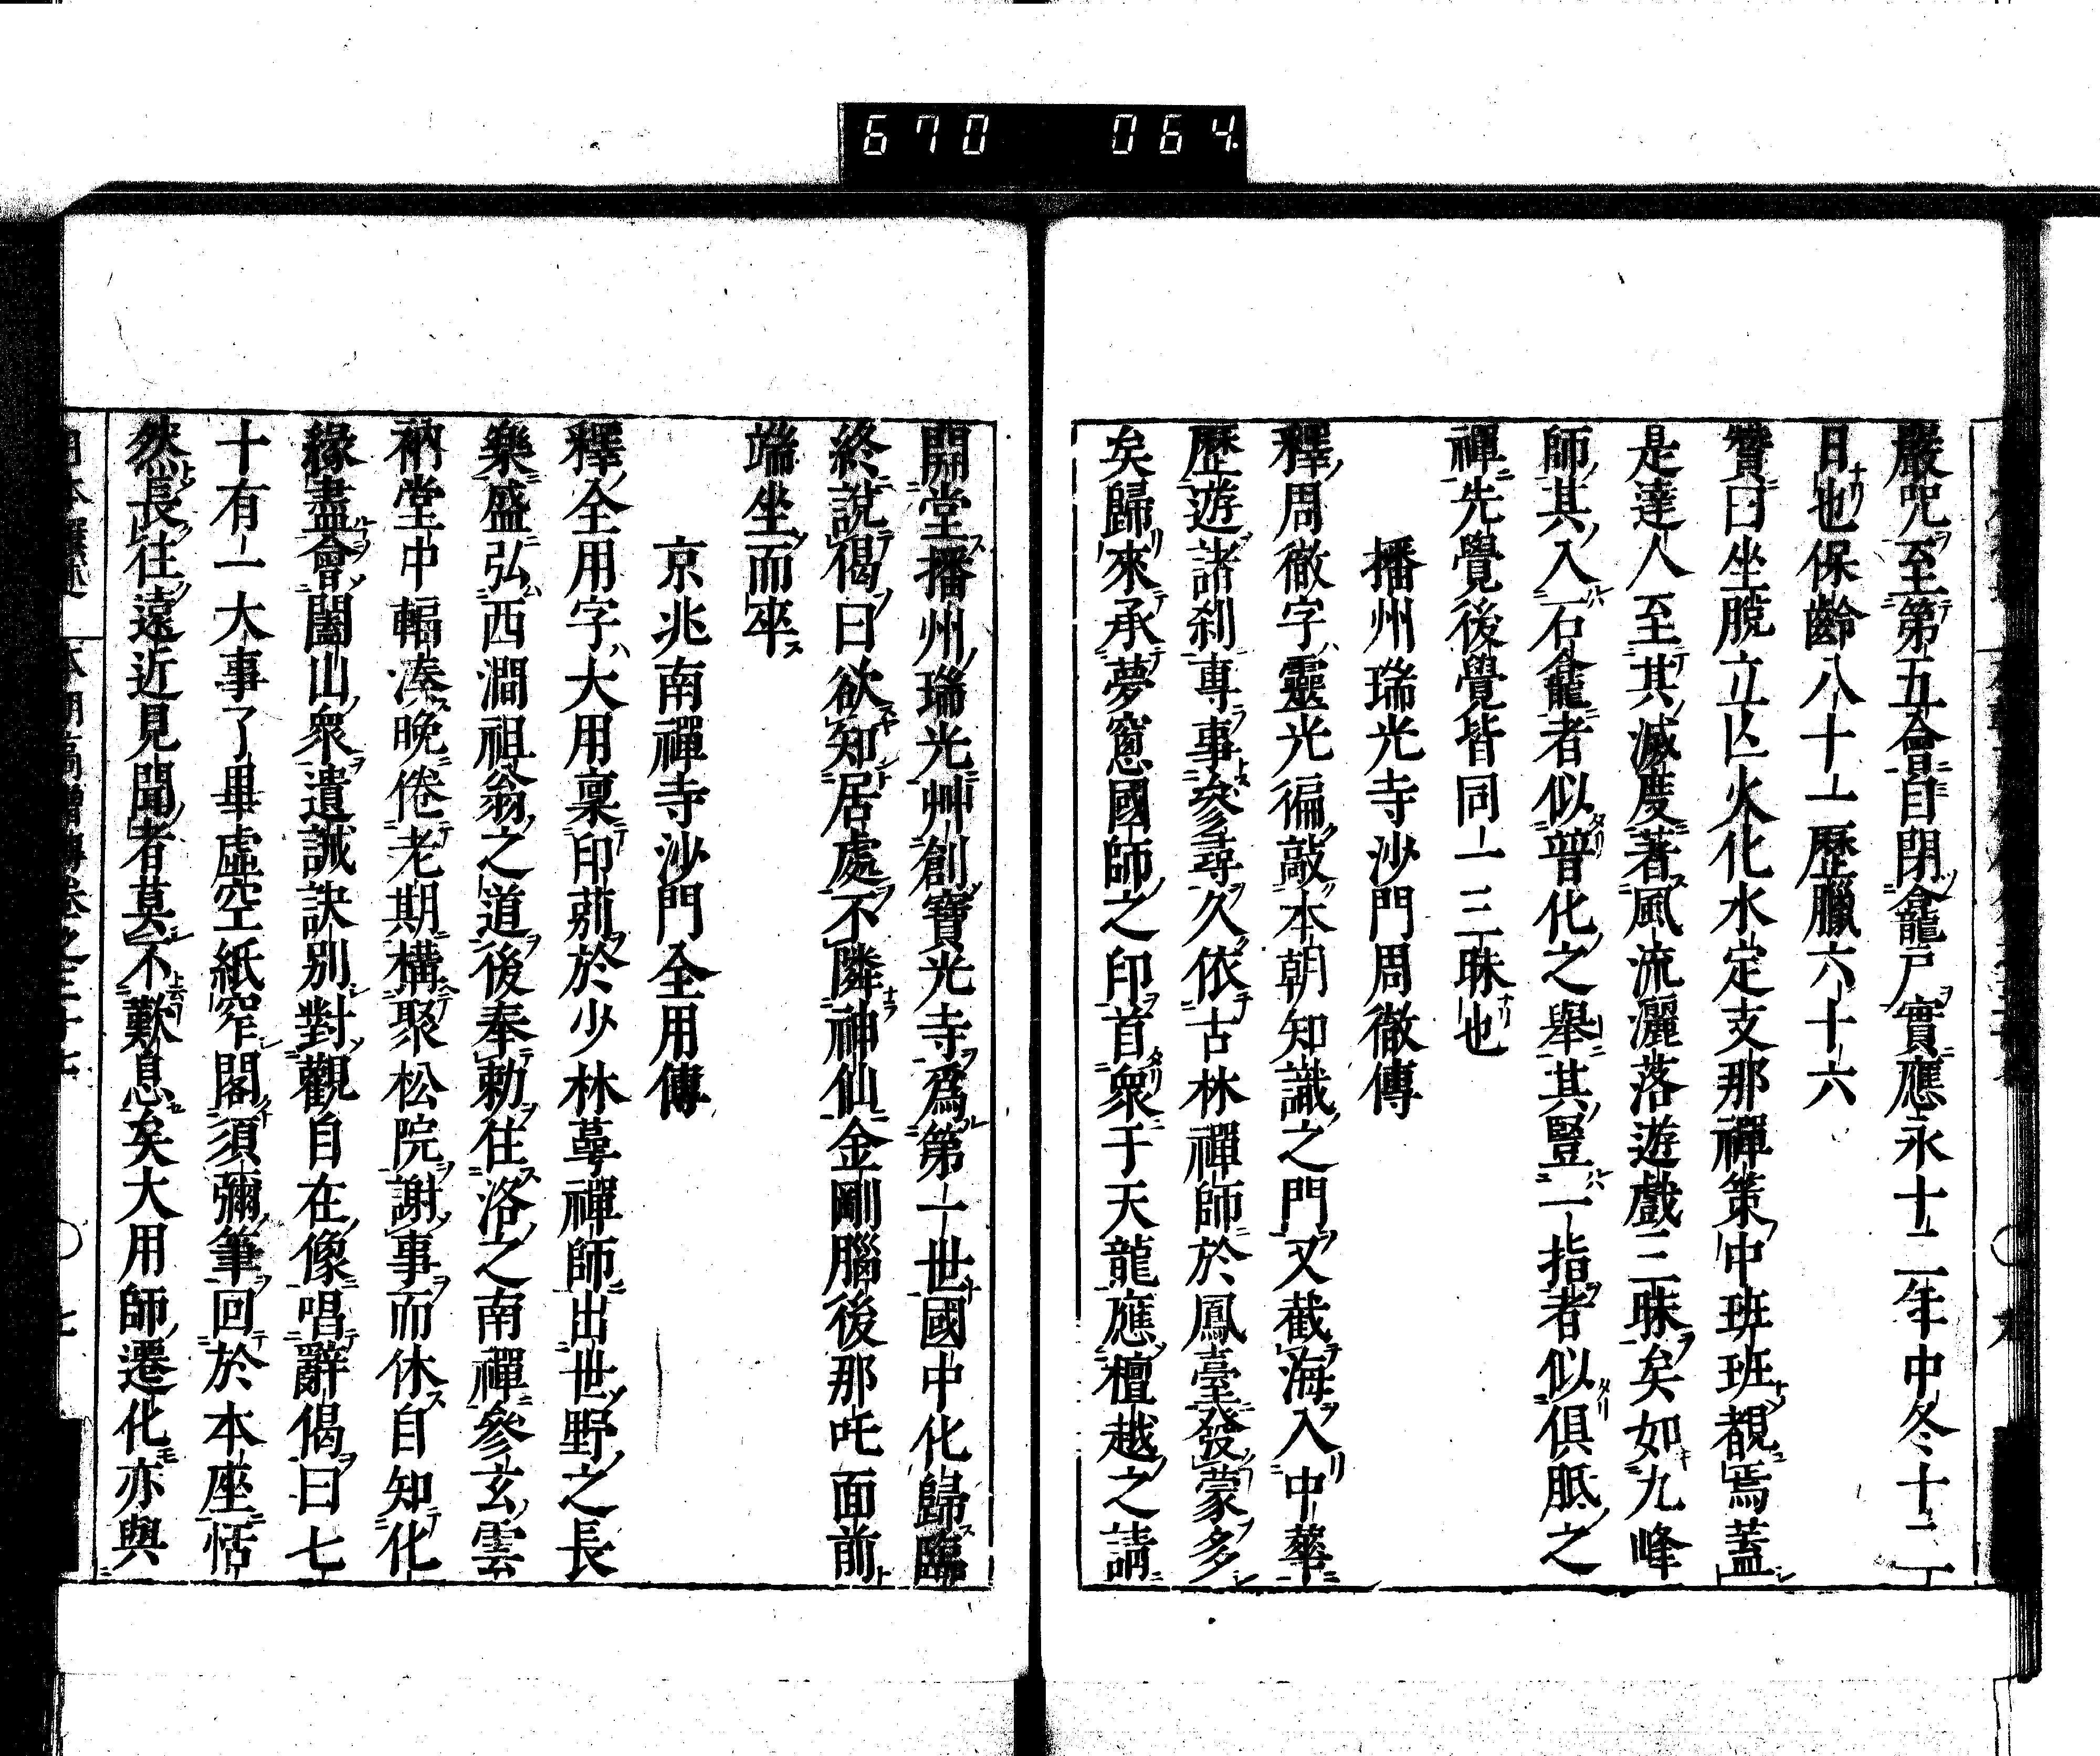 670 064
嚴咒至第五會自閉龕戸實應永十二年中冬十二
日也保齡八十一歷臘六十六
贊曰坐脫立亾火化水定支那禪策中班班覩焉蓋
是達人至其滅度著風流灑落遊戲三昧矣如九峰
師其入石龕者似普化之舉其豎一指者似俱胝之
禪先覺後覺皆同一三昧也
播州瑞光寺沙門周徹傳
釋周徹字靈光徧敲本朝知識之門又截海入中華
歷遊諸刹專事參尋久依古林禪師於鳳臺發蒙多
矣歸來承夢窓國師之印首衆于天龍應檀越之請
開堂播州瑞光艸創寶光寺爲第一世國中化歸臨
終說偈曰欲知居處不隣神仙金剛腦後那吒面前
端坐而卒
京兆南禪寺沙門全用傳
釋全用字大用稟印莂於少林蕚禪師出世野之長
樂盛弘西澗祖翁之道後奉勅住洛之南禪參玄雲
衲堂中輻湊晚倦老期構聚松院謝事而休自知化
緣盡會闔山衆遺誡訣別對觀自在像唱辭偈曰七
十有一大事了畢虛空紙窄閣須彌筆回於本座恬
然長往遠近見聞者莫不歎息矣大用師遷化亦與